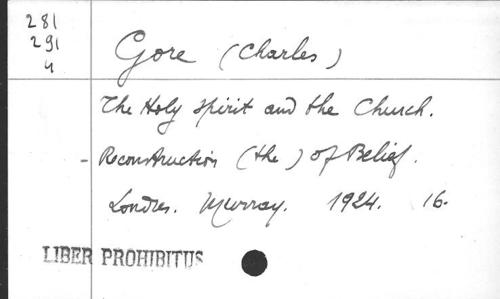 281
291
4
Gore (Charles)
The Holy Spirit and the Church.
- Reconstruction (the) of Belief.
Londres. Murray. 1924. 16.
LIBER PROHIBITUS